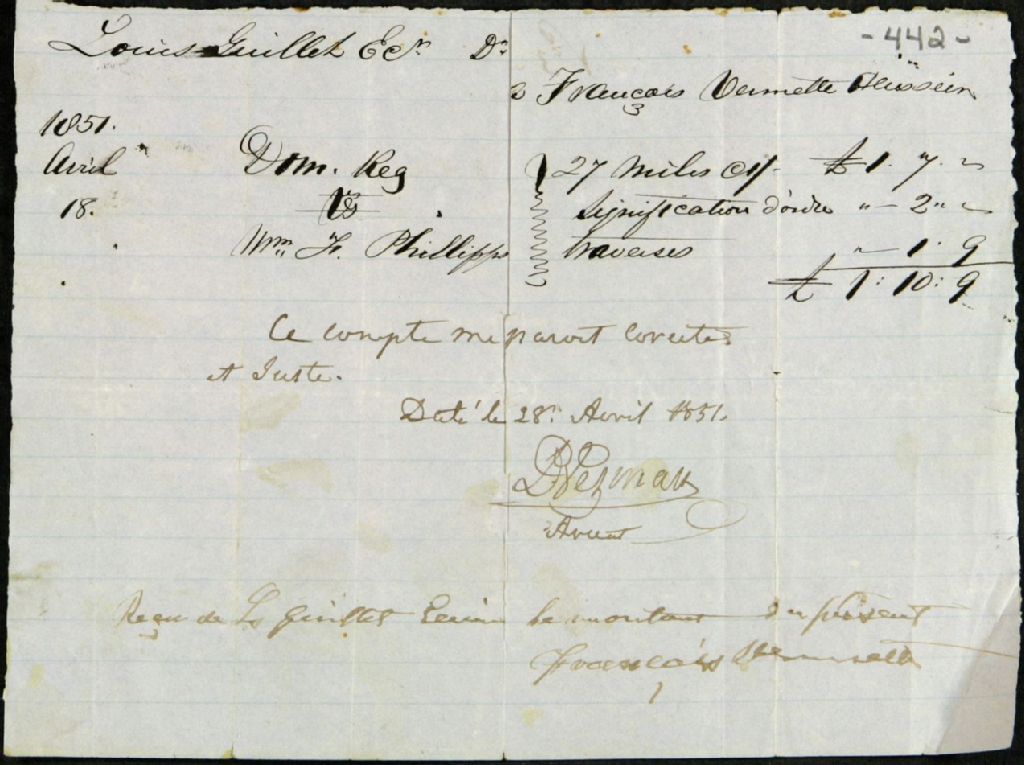 Louis Guillet Ecr Dr
- 442 -
à François Vermette Huissier
1851.
Avril Dom. Reg 27 miles £ 1. 7. "
18. Vs Signification d'ordre " - 2 " "
Wm H. Phillipps traverses " - 1 . 9
£ 1 : 10 : 9
Ce compte me paroit correctes
et Juste.
Daté le 28. Avril 1851.
Avocat
Reçu de Ls Guillet Ecuier le montant du présent
François Vermette